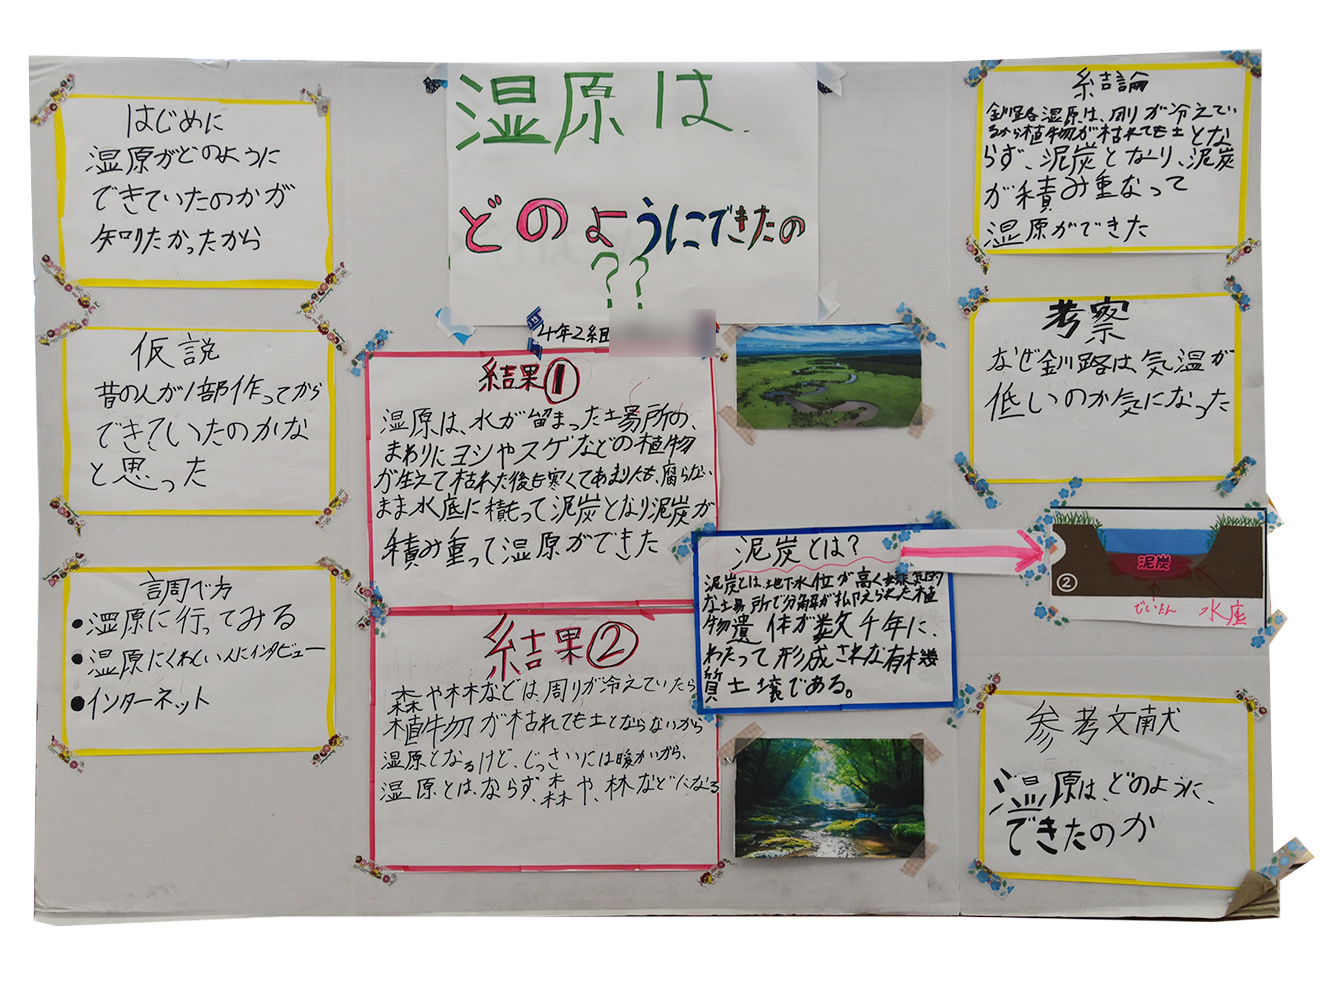 湿原は
どのようにできたの
??
4年2組
はじめに
湿原がどのように
できていたのかが
知りたかったから
仮説
昔の人が1部作ってから
できていたのかな
と思った
調べ方
●湿原に行ってみる
●湿原にくわしい人にインタビュー
●インターネット
結果①
湿原は、水が留まった場所の、
まわりにヨシやスゲなどの植物
が生えて枯れた後も寒くてあまりにも、腐らない
まま水底に積もって泥炭となり泥炭が
積み重って湿原ができた
結果②
森や林などは周りが冷えていたら
植物が枯れても土とならないから
湿原となるけど、じっさいには暖かいから、
湿原とは、ならず、森や、林などになる
泥炭とは?
泥炭とは、地下水位が高く嫌気的
な場所で分解が抑えられた植
物遺体が数千年に、
わたって形成された有機
質土壌である。
結論
釧路湿原は、周りが冷えてい
るから植物が枯れても土とな
らず、泥炭となり、泥炭
が積み重なって
湿原ができた
考察
なぜ釧路は気温が
低いのか気になった
泥炭
②
でいたん
水底
参考文献
湿原は、どのように、
できたのか